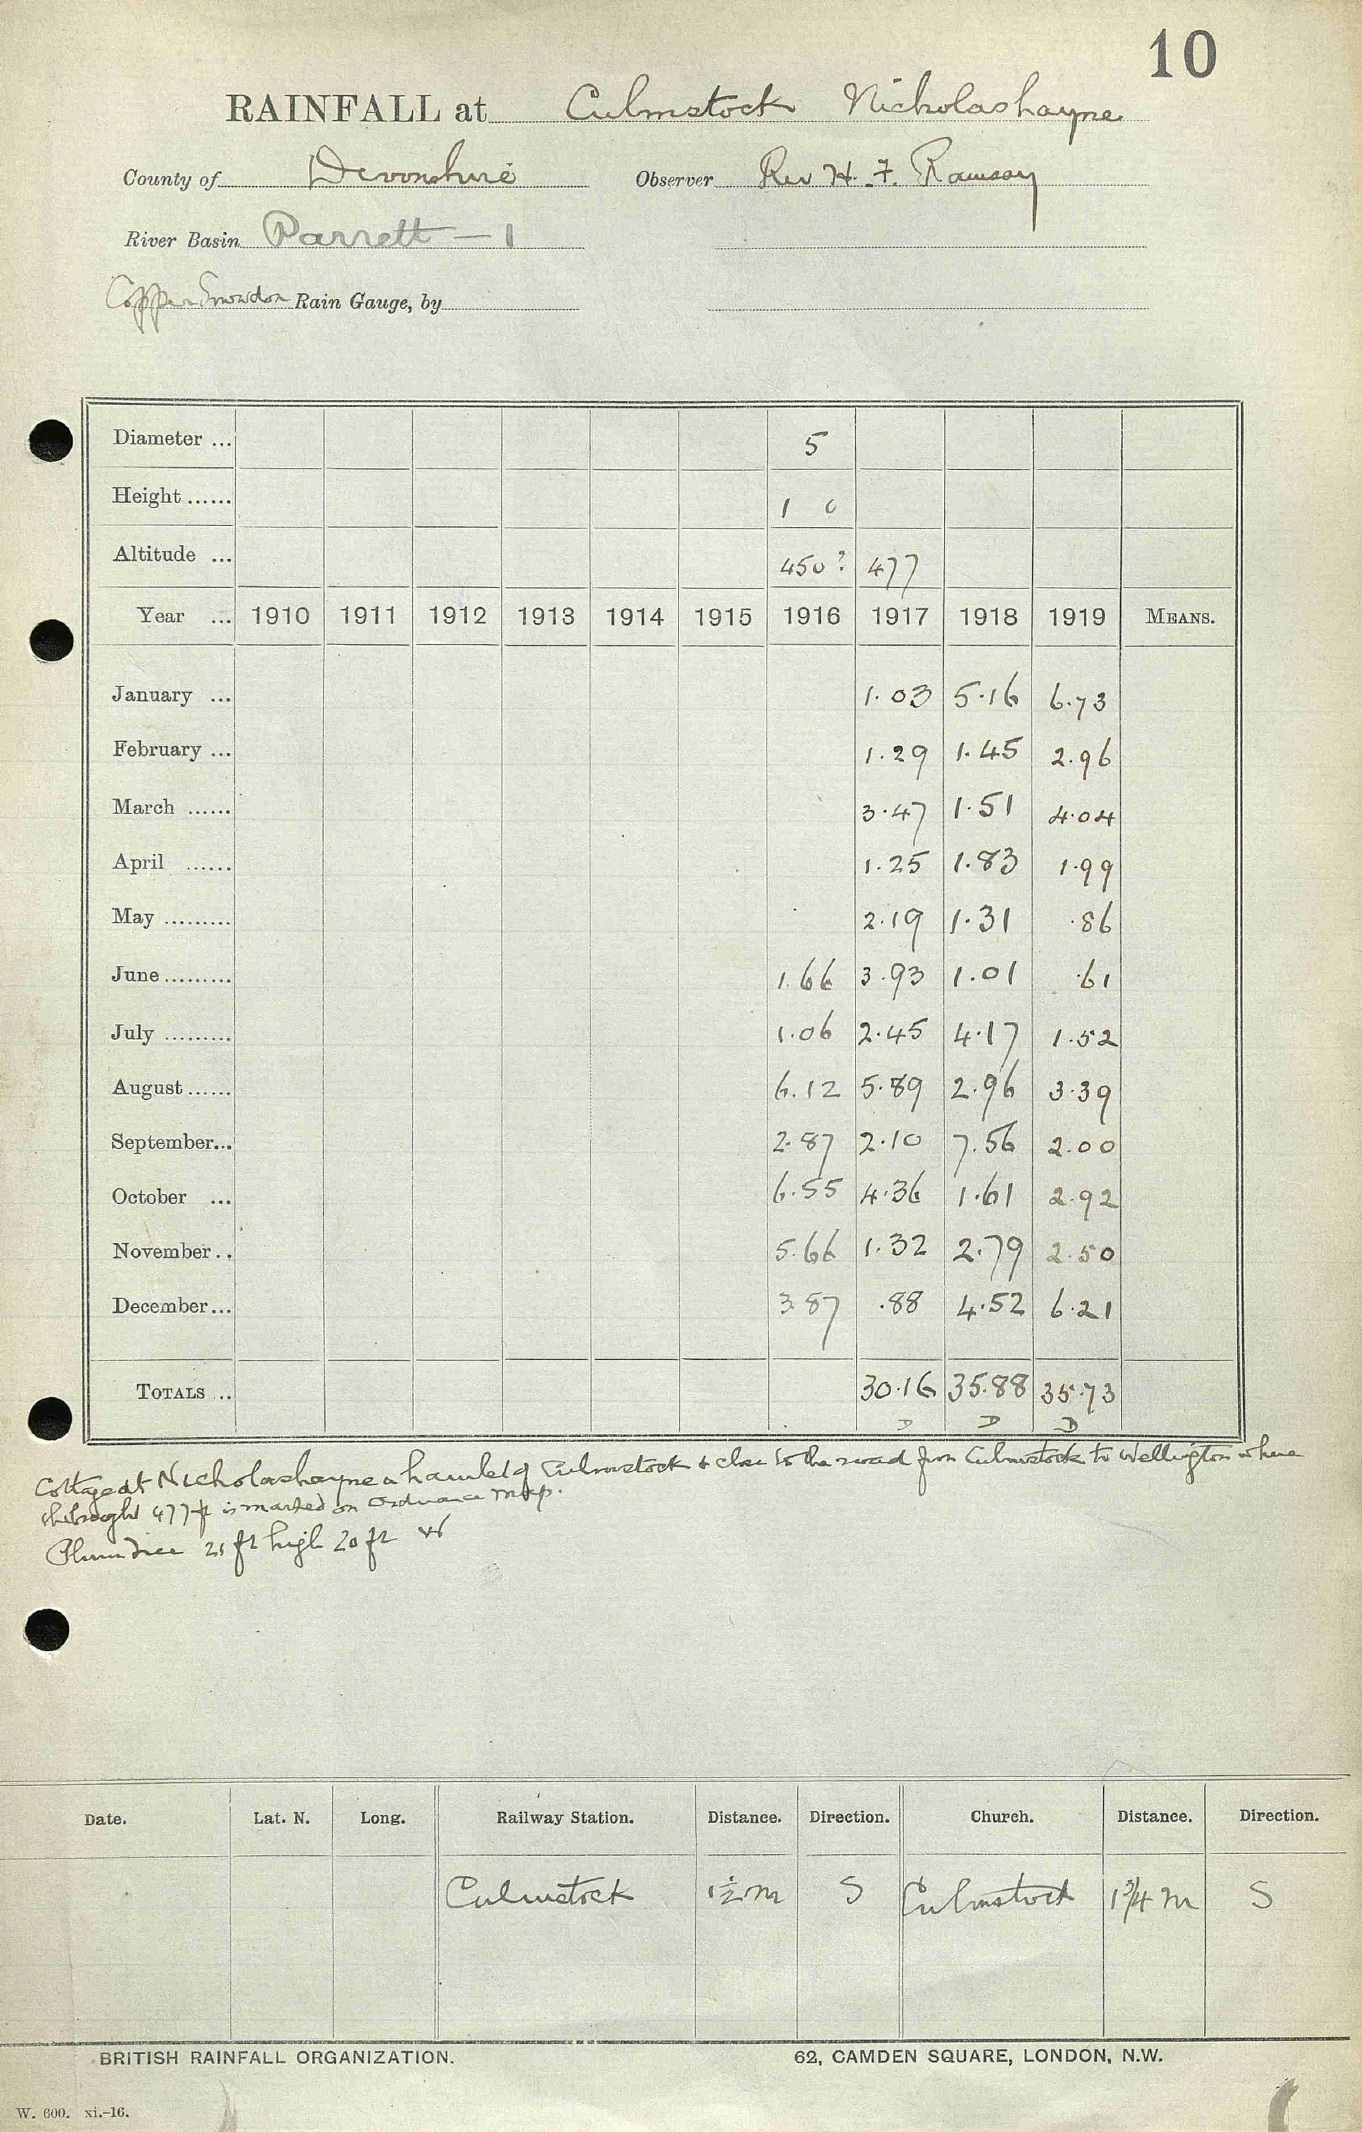 10
RAINFALL at Culmstock Nicholashayne
County of Devonshire Observer Rev H. F. Ramsay
River Basin Parrett - 1
Copper Snowdon Rain Gauge, by
Diameter ... 5
Height ...... 1 0
Altitude ... 450? 477
Year ... 1910 1911 1912 1913 1914 1915 1916 1917 1918 1919 MEANS.
January ... 1.03 5.16 6.73
February ... 1.29 1.45 2.96
March ...... 3.47 1.51 4.04
April ...... 1.25 1.83 1.99
May ......... 2.19 1.31 .86
June ......... 1.66 3.93 1.01 .61
July ......... 1.06 2.45 4.17 1.52
August ...... 6.12 5.89 2.96 3.39
September... 2.87 2.10 7.56 2.00
October ... 6.55 4.36 1.61 2.92
November .. 5.66 1.32 2.79 2.50
December... 3.87 .88 4.52 6.21
TOTALS .. 30.16 35.88 35.73
D D D
Cottage at Nicholashayne a hamlet of Culmstock & close to the road from Culmstock to Wellington where
the height 477 ft is marked on Ordnance Map.
Plum Tree 21 ft high 20 ft W
Date. Lat. N. Long. Railway Station. Distance. Direction. Church. Distance. Direction.
Culmstock 1½ m S Culmstock 1¾ m S
BRITISH RAINFALL ORGANIZATION. 62, CAMDEN SQUARE, LONDON, N.W.
W. 600. xi.-16.